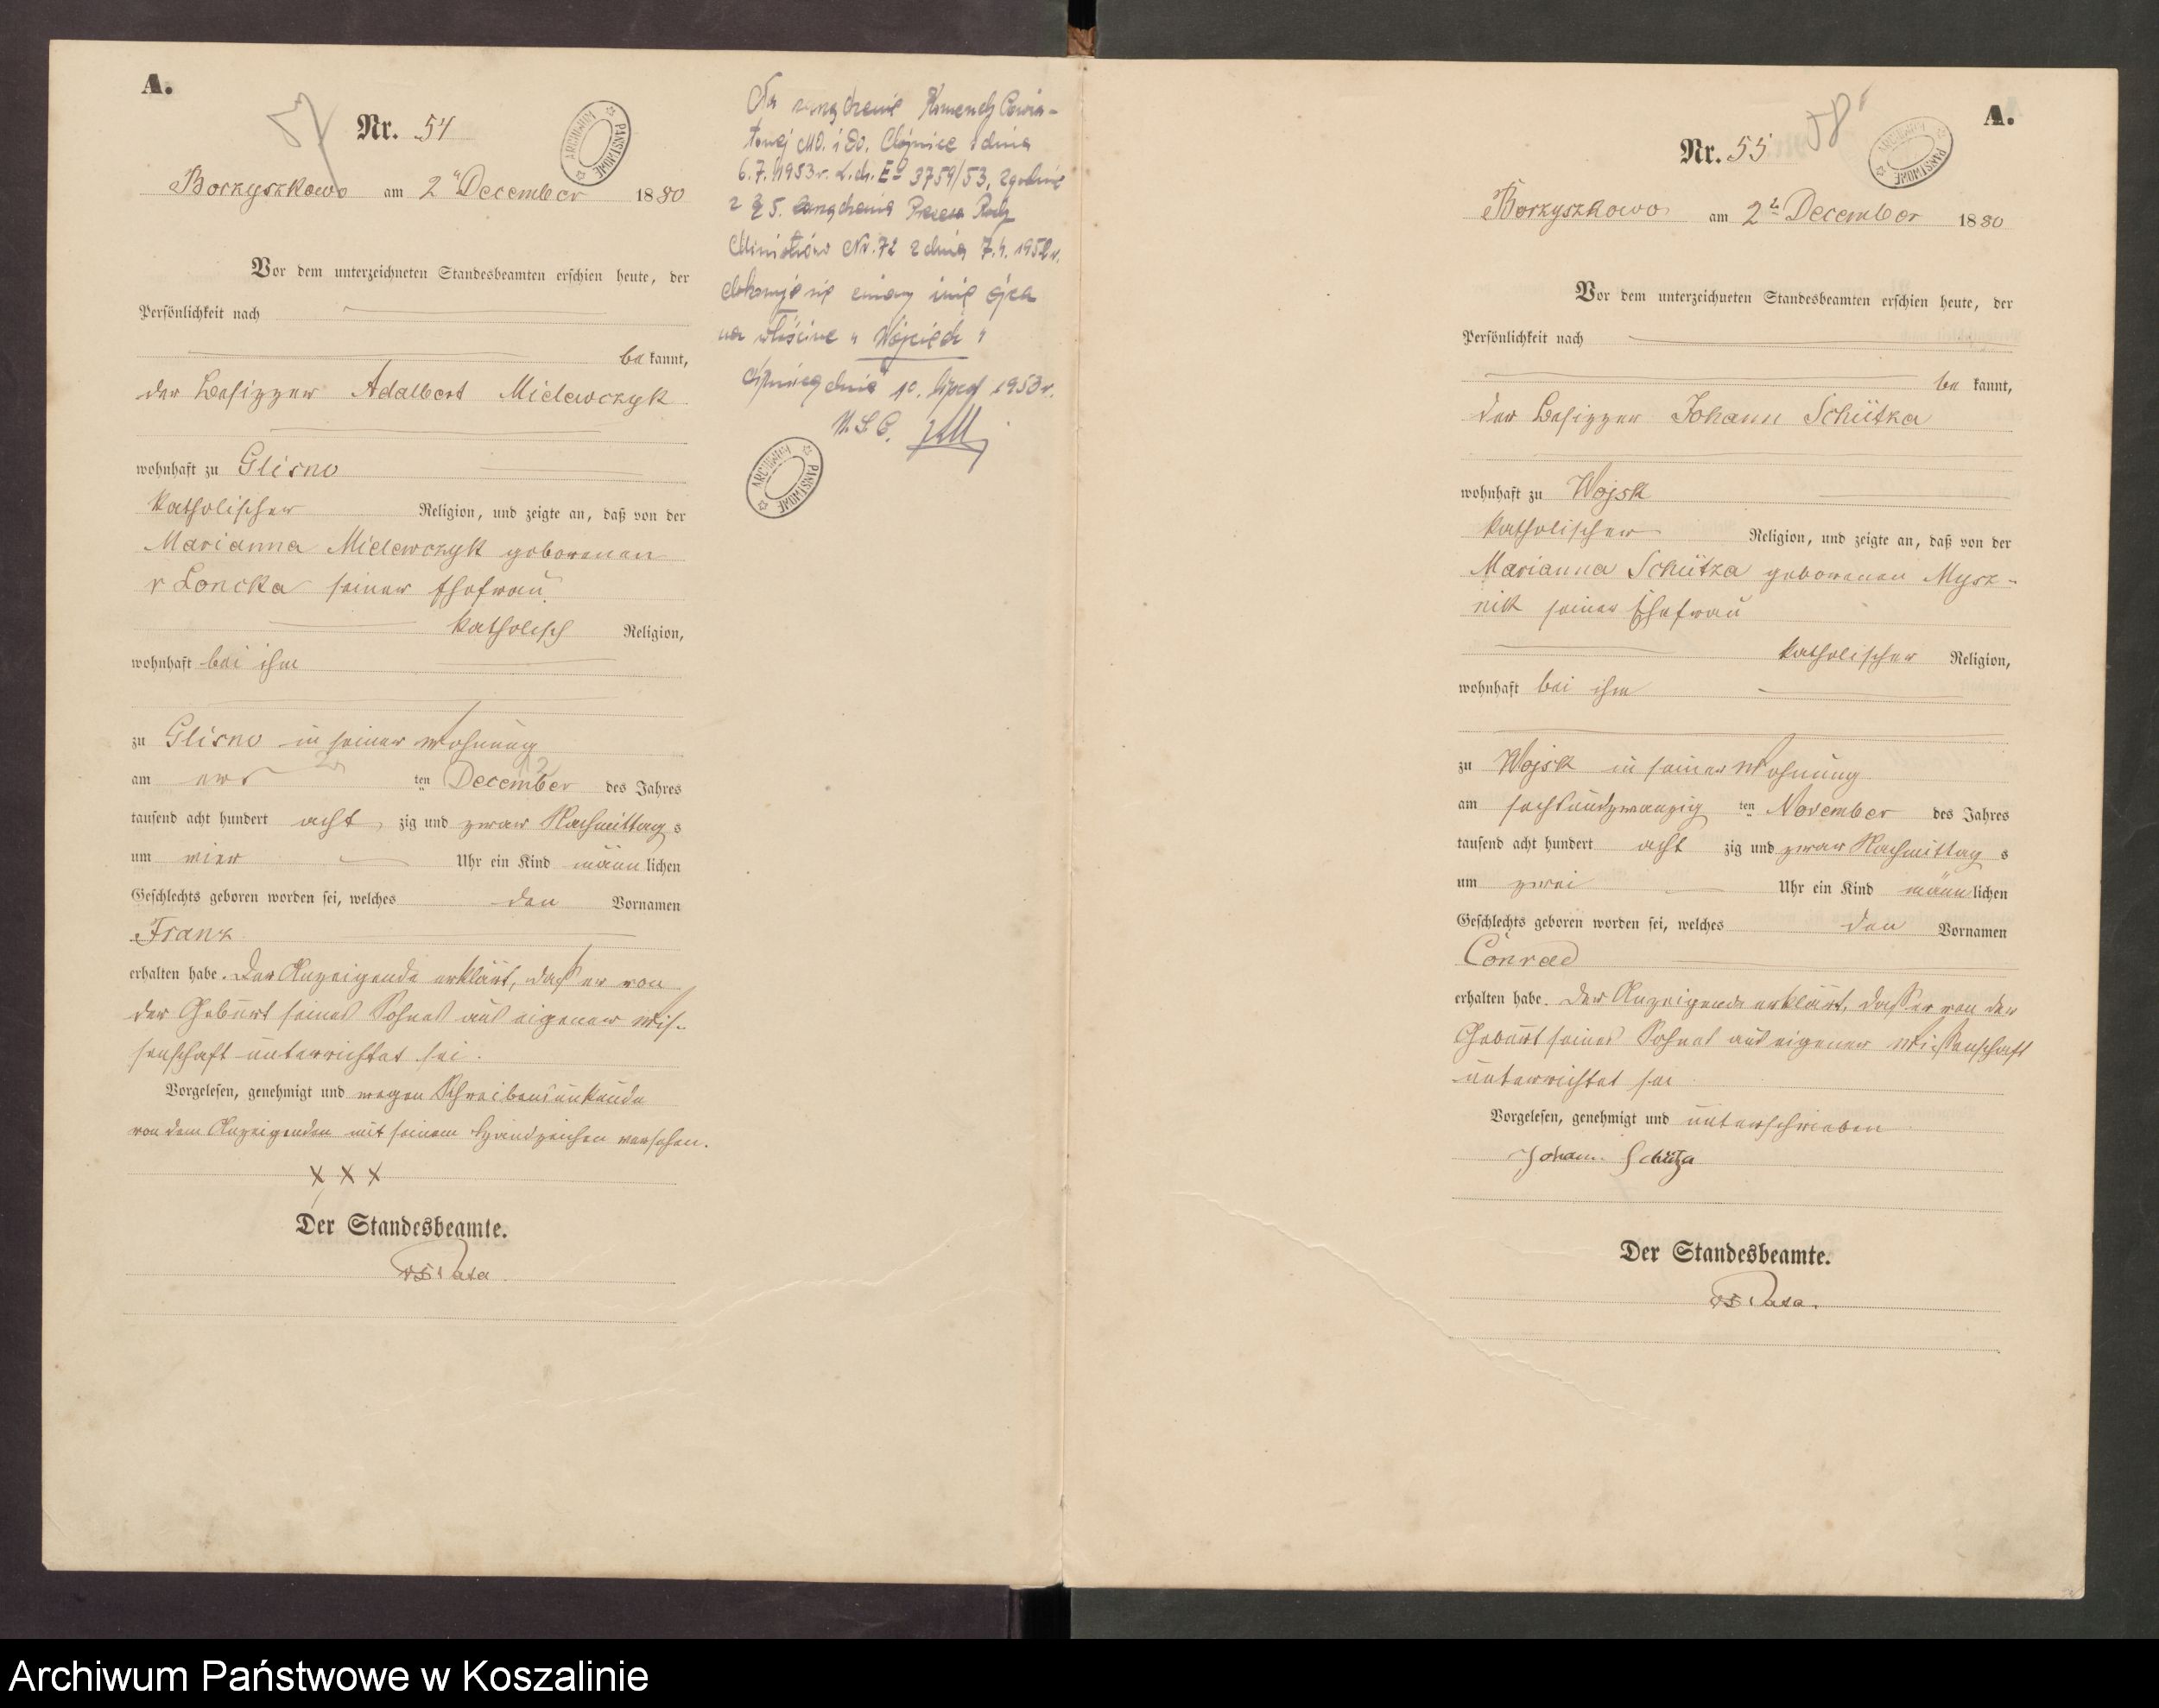 A.
57
Nr. 54
ARCHIWUM PAŃSTWOWE
Borzyszkowo am 2 December 1880
Vor dem unterzeichneten Standesbeamten erschien heute, der
Persönlichkeit nach
be kannt,
der Besitzer Adalbert Mielewczyk
wohnhaft zu Glisno
katholischer Religion, und zeigte an, daß von der
Marianna Mielewczyk geborenen
v Loncka seiner Ehefrau
katholisch Religion,
wohnhaft bei ihm
zu Glisno in seiner Wohnung
am ers ten December des Jahres
tausend acht hundert acht zig und zwar Nachmittag s
um vier Uhr ein Kind männ lichen
Geschlechts geboren worden sei, welches den Vornamen
Franz
erhalten habe. Der Anzeigende erklärt, daß er von
der Geburt seines Sohnes aus eigener Wis-
senschaft unterrichtet sei.
Vorgelesen, genehmigt und wegen Schreibensunkunde
von dem Anzeigenden mit seinem Handzeichen versehen.
X X X
Der Standesbeamte.
Na zarządzenie Komendy Powia-
towej M.O. i BO. Chojnice z dnia
6.7.1953r. L.dz. E 3759/53, zgodnie
z § 5. zarządzenia Prezesa Rady
Ministrów Nr. 72 z dnia 7.4.1952r.
dokonuje się zmiany imię ojca
na właściwe "Wojciech"
dnia 10. lipca 1953r.
U.S.C.
ARCHIWUM PAŃSTWOWE
58
A.
Nr. 55
ARCHIWUM PAŃSTWOWE
Borzyszkowo am 2 December 1880
Vor dem unterzeichneten Standesbeamten erschien heute, der
Persönlichkeit nach
be kannt,
der Besitzer Johann Schütza
wohnhaft zu Wojsk
katholischer Religion, und zeigte an, daß von der
Marianna Schütza geborenen Mysz-
nik seiner Ehefrau
katholischer Religion,
wohnhaft bei ihm
zu Wojsk in seiner Wohnung
am sechsundzwanzig ten November des Jahres
tausend acht hundert acht zig und zwar Nachmittag s
um zwei Uhr ein Kind männ lichen
Geschlechts geboren worden sei, welches den Vornamen
Conrad
erhalten habe. Der Anzeigende erklärt, daß er von der
Geburt seines Sohnes aus eigener Wissenschaft
unterrichtet sei
Vorgelesen, genehmigt und unterschrieben
Johann Schütza
Der Standesbeamte.
Archiwum Państwowe w Koszalinie